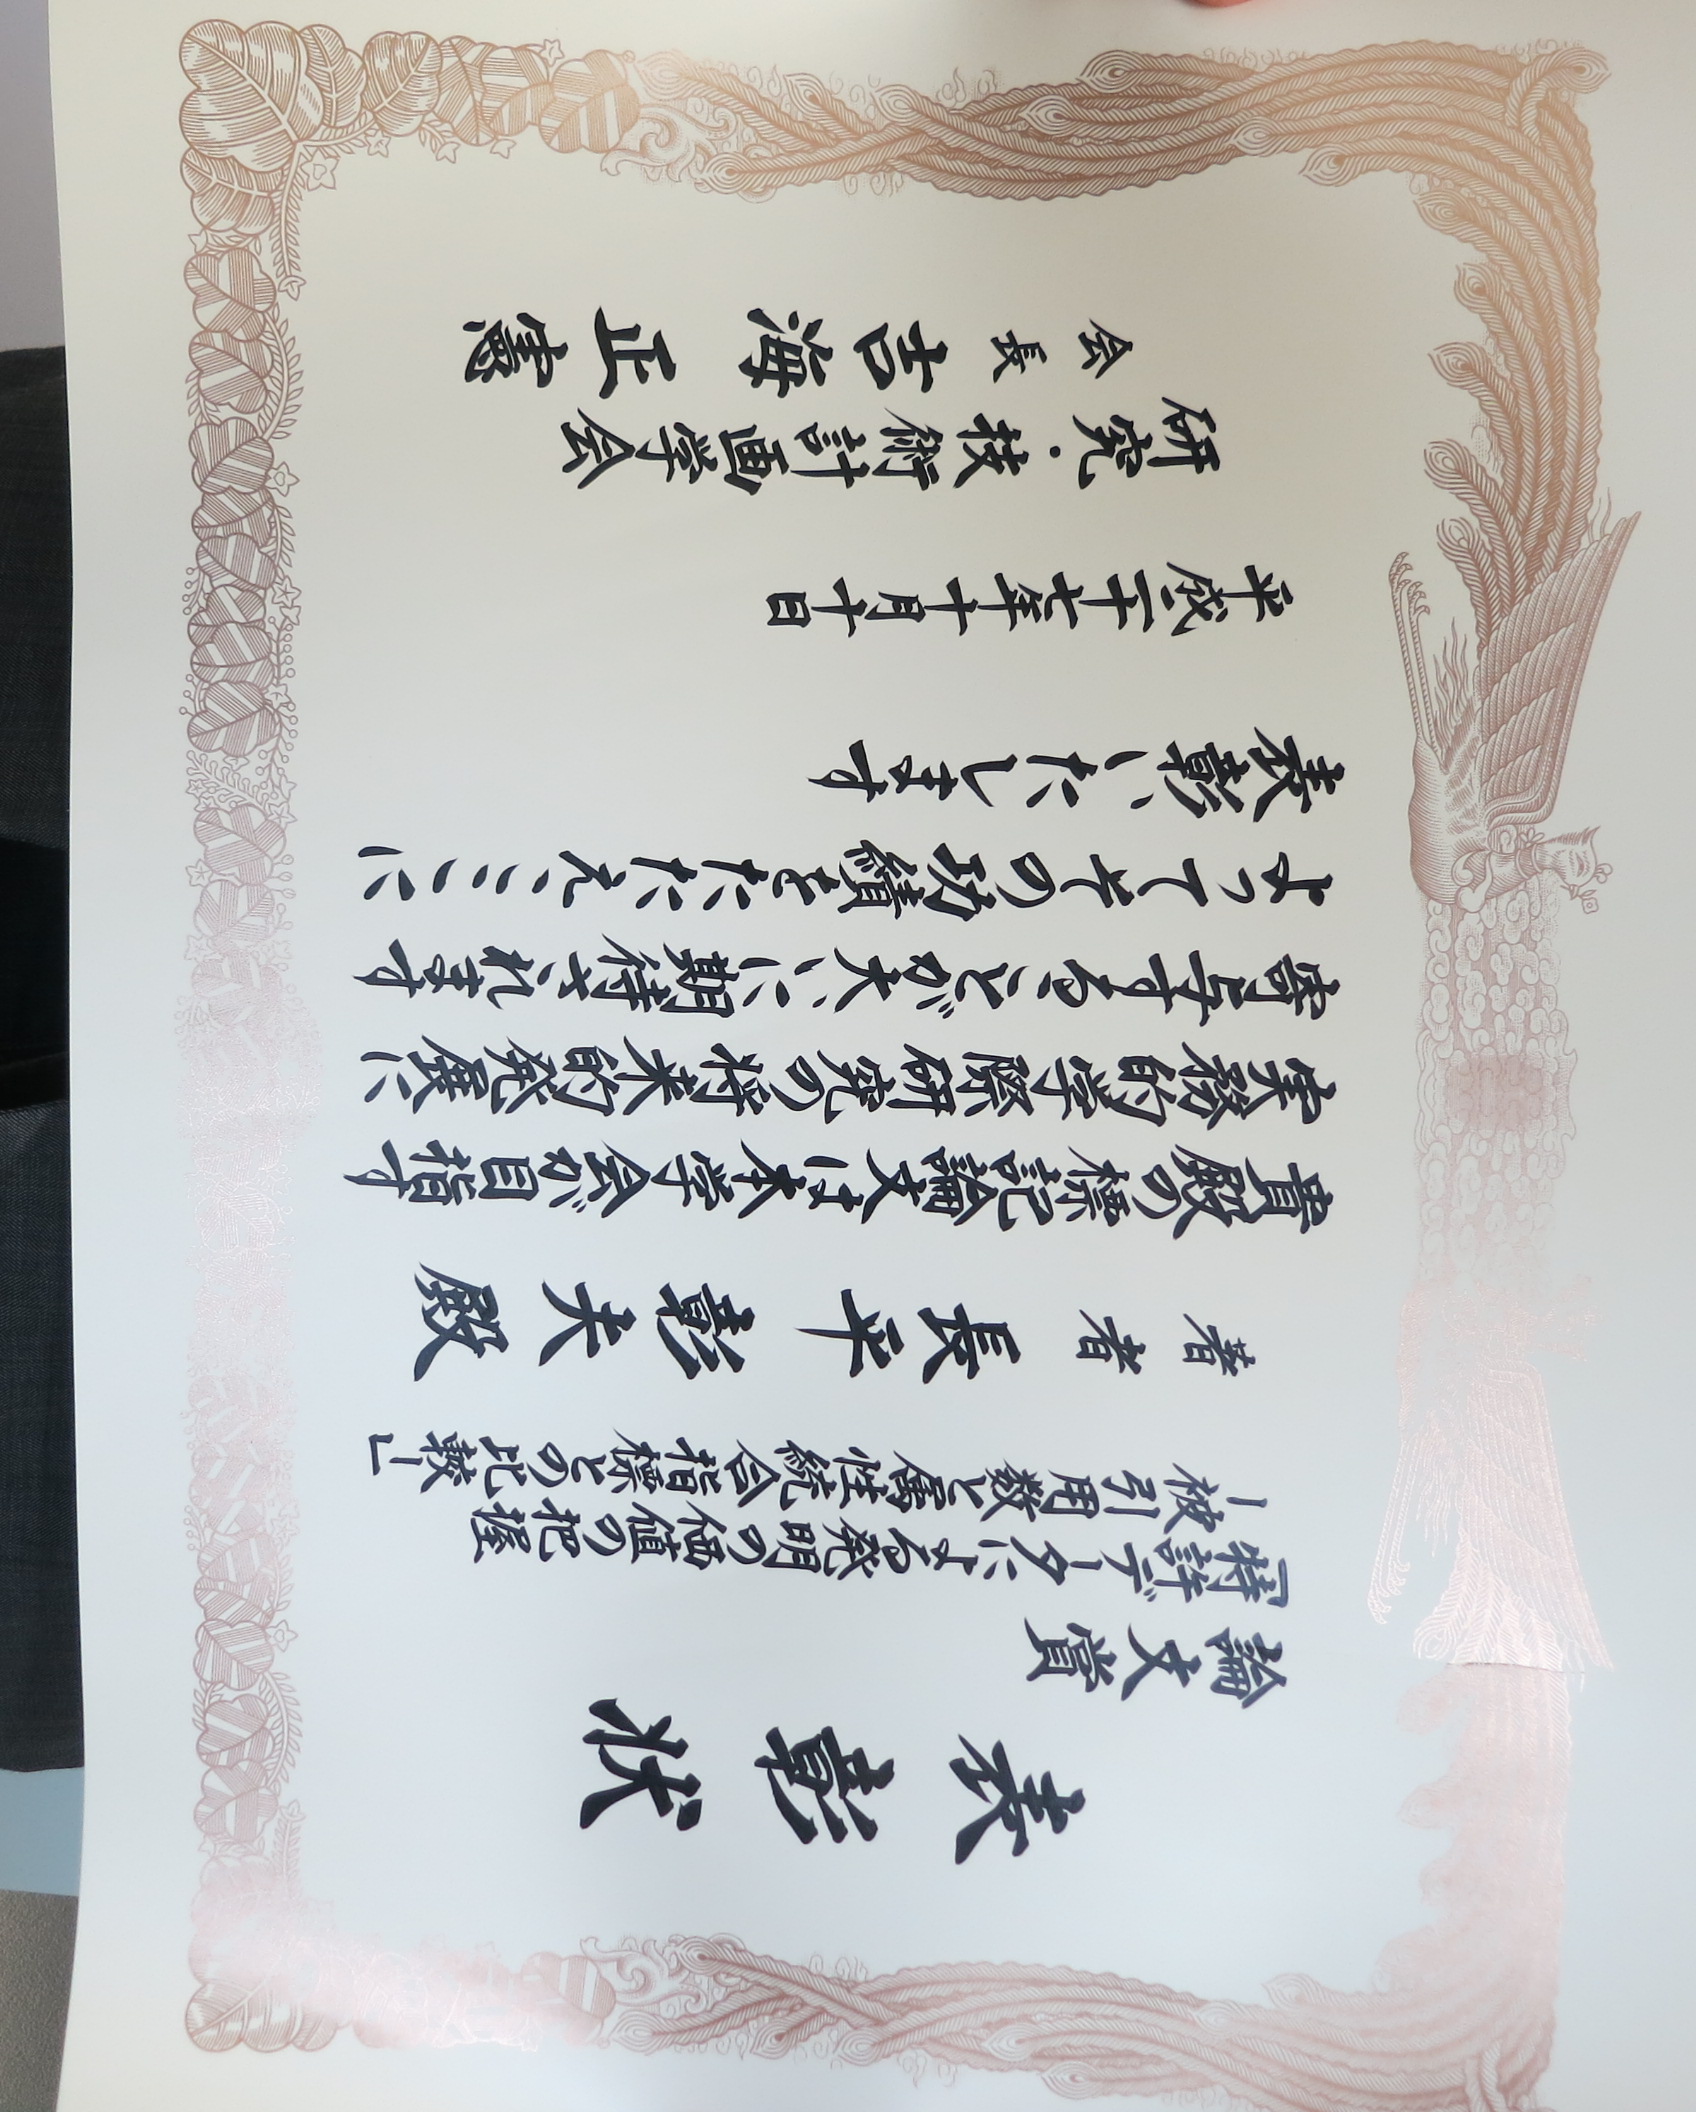 表彰状
論文賞
『特許データによる発明の価値の把握
ー被引用数と属性統合指標との比較ー』
著者 長平彰夫殿
貴殿の標記論文は本学会が目指す
実務的学際研究の将来的発展に
寄与することが大いに期待されます
よって半の功績をたたえここに
表彰いたします
平成二十七年十月十日
研究・技術計画学会
会長 吉海正憲